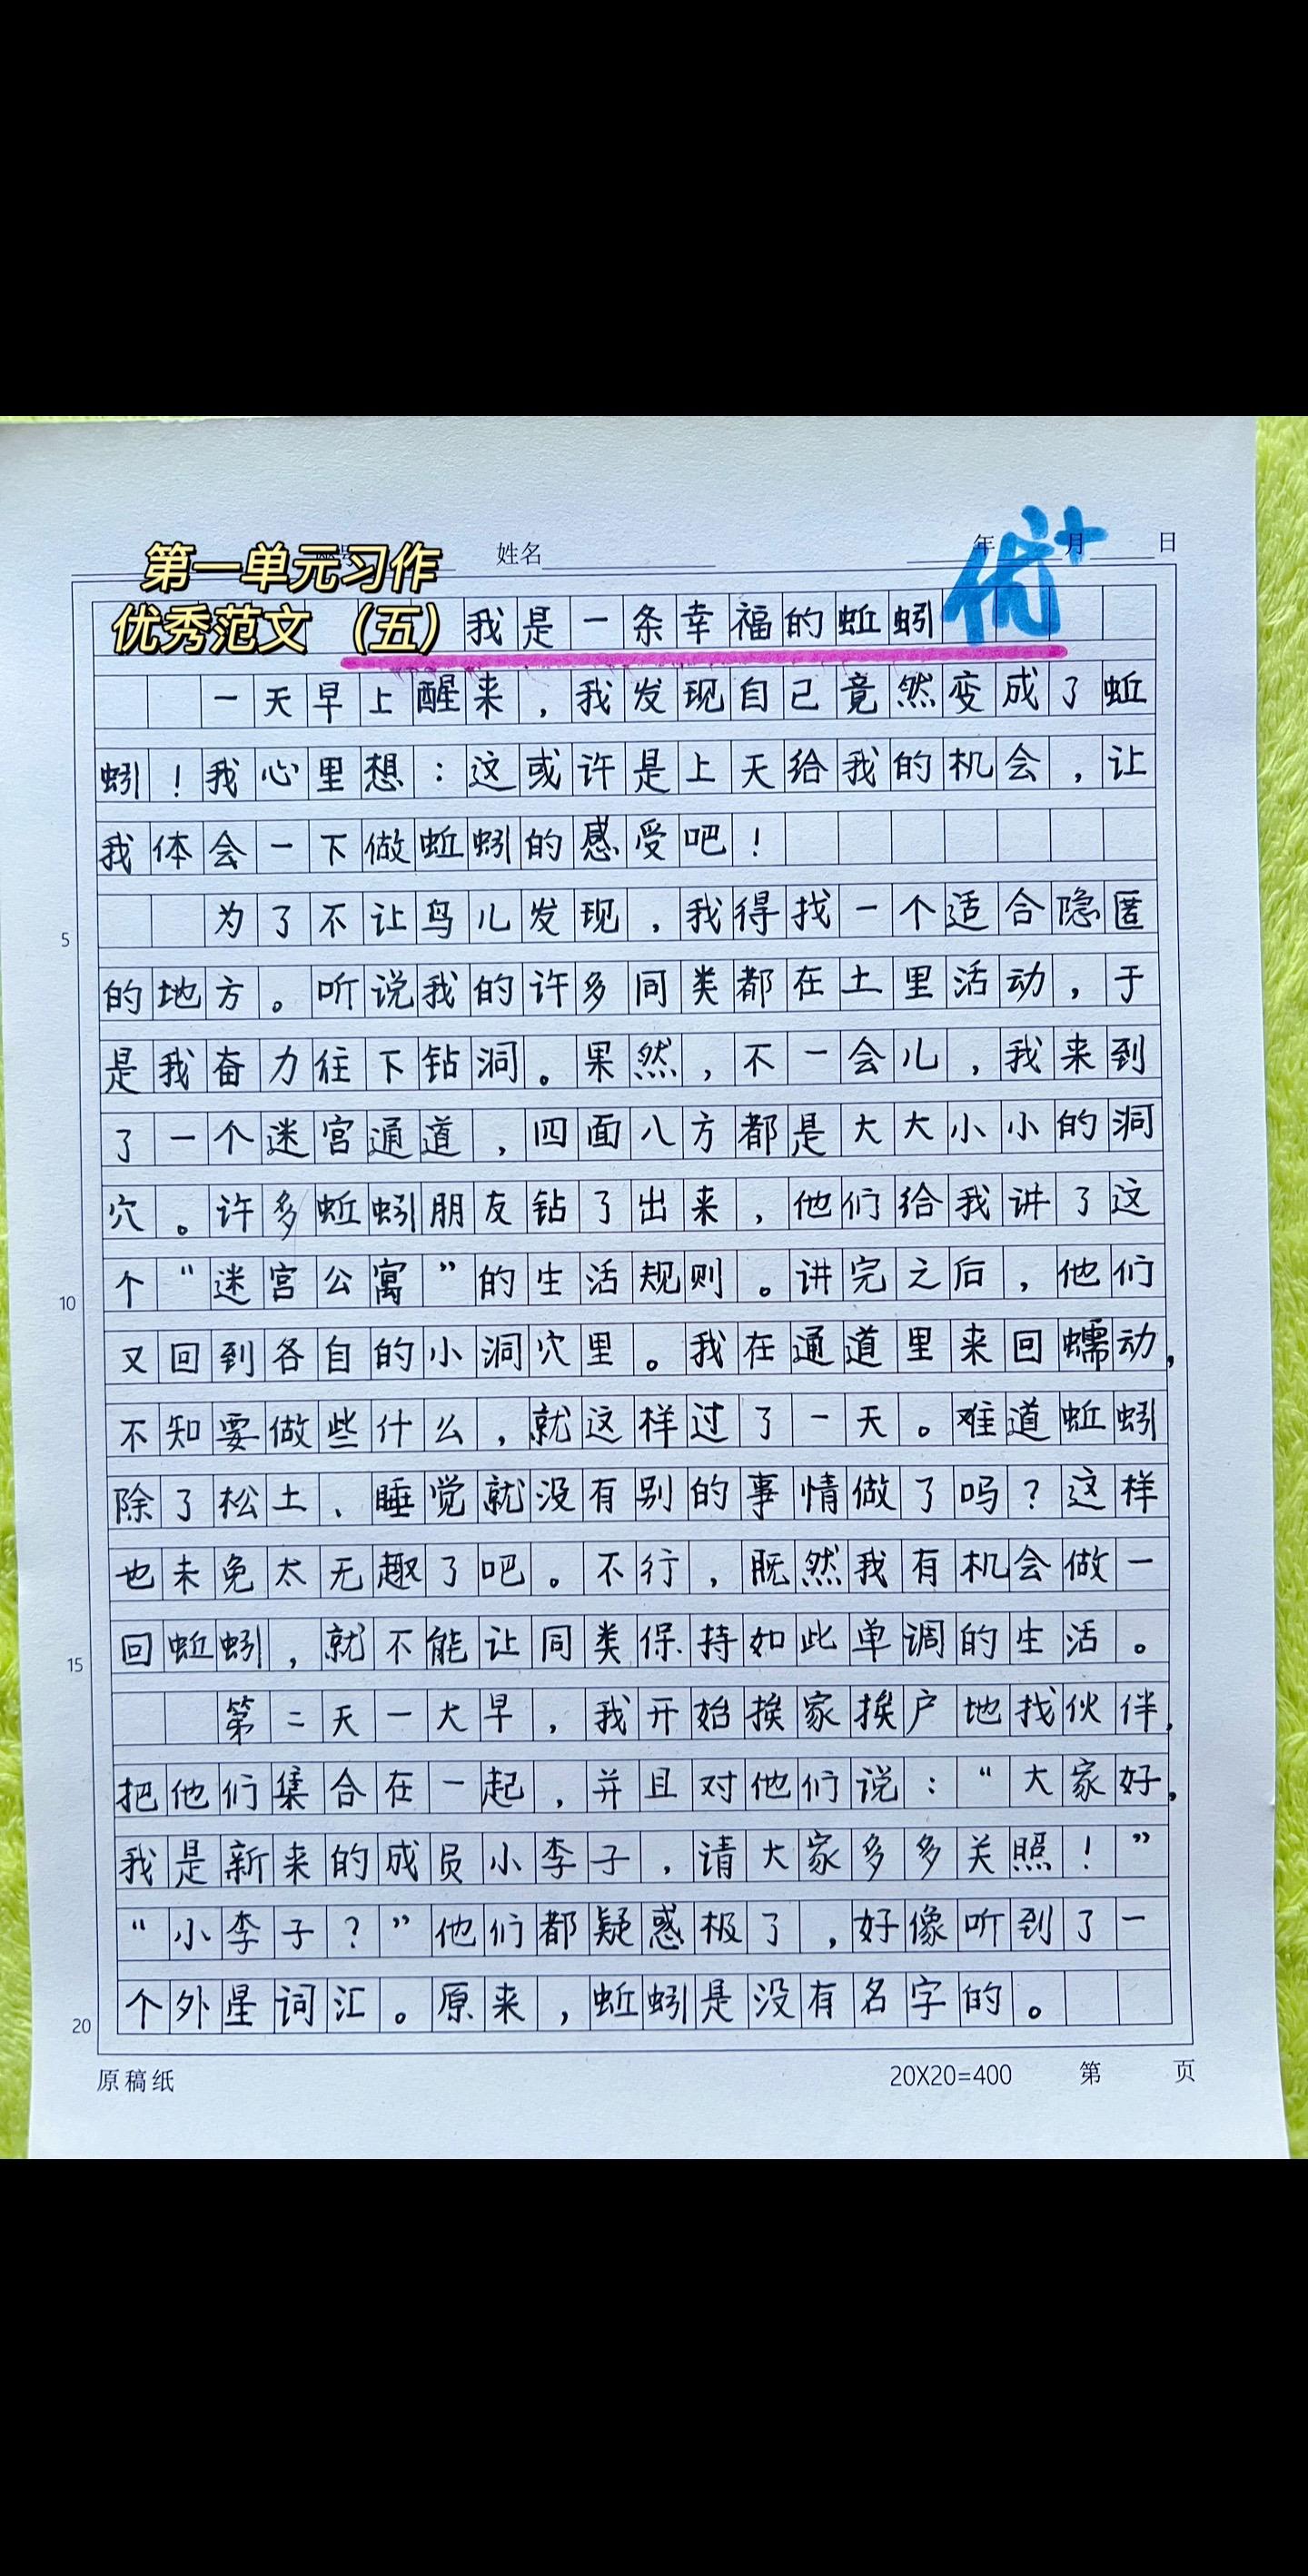 第一单元习作
优秀范文（五）
姓名 年 月 日
优+
我是一条幸福的蚯蚓
一天早上醒来，我发现自己竟然变成了蚯
蚓！我心里想：这或许是上天给我的机会，让
我体会一下做蚯蚓的感受吧！
为了不让鸟儿发现，我得找一个适合隐匿
5
的地方。听说我的许多同类都在土里活动，于
是我奋力往下钻洞。果然，不一会儿，我来到
了一个迷宫通道，四面八方都是大大小小的洞
穴。许多蚯蚓朋友钻了出来，他们给我讲了这
个“迷宫公寓”的生活规则。讲完之后，他们
10
又回到各自的小洞穴里。我在通道里来回蠕动，
不知要做些什么，就这样过了一天。难道蚯蚓
除了松土、睡觉就没有别的事情做了吗？这样
也未免太无趣了吧。不行，既然我有机会做一
回蚯蚓，就不能让同类保持如此单调的生活。
15
第二天一大早，我开始挨家挨户地找伙伴，
把他们集合在一起，并且对他们说：“大家好，
我是新来的成员小李子，请大家多多关照！”
“小李子？”他们都疑惑极了，好像听到了一
个外星词汇。原来，蚯蚓是没有名字的。
20
原稿纸 20X20=400 第 页